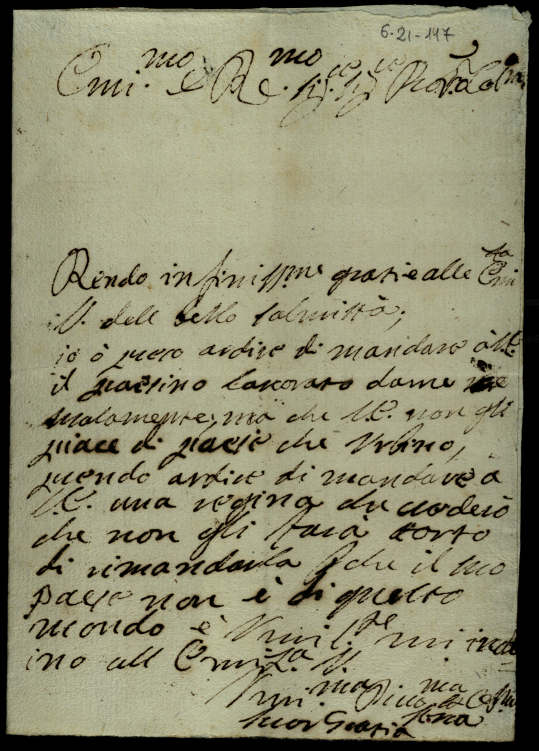 6-21-117
Emi.mo e Re.mo Sig.re Sig.re
Rendo infiniss.me gratie alle Emi
V. dell bello
io ò preso ardire di mandare à V.E.
il paesino lavorato da me
malamente, ma che V.E. non gli
piace di paese che Urbino,
prendo ardire di mandare a
V.E. una regina che crederò
che non gli farà torto
di rimandarla che il suo
paese non è di questo
mondo è Umil.te mi inch
ino all Emi.za V.
Umi.ma
Suor Gratia